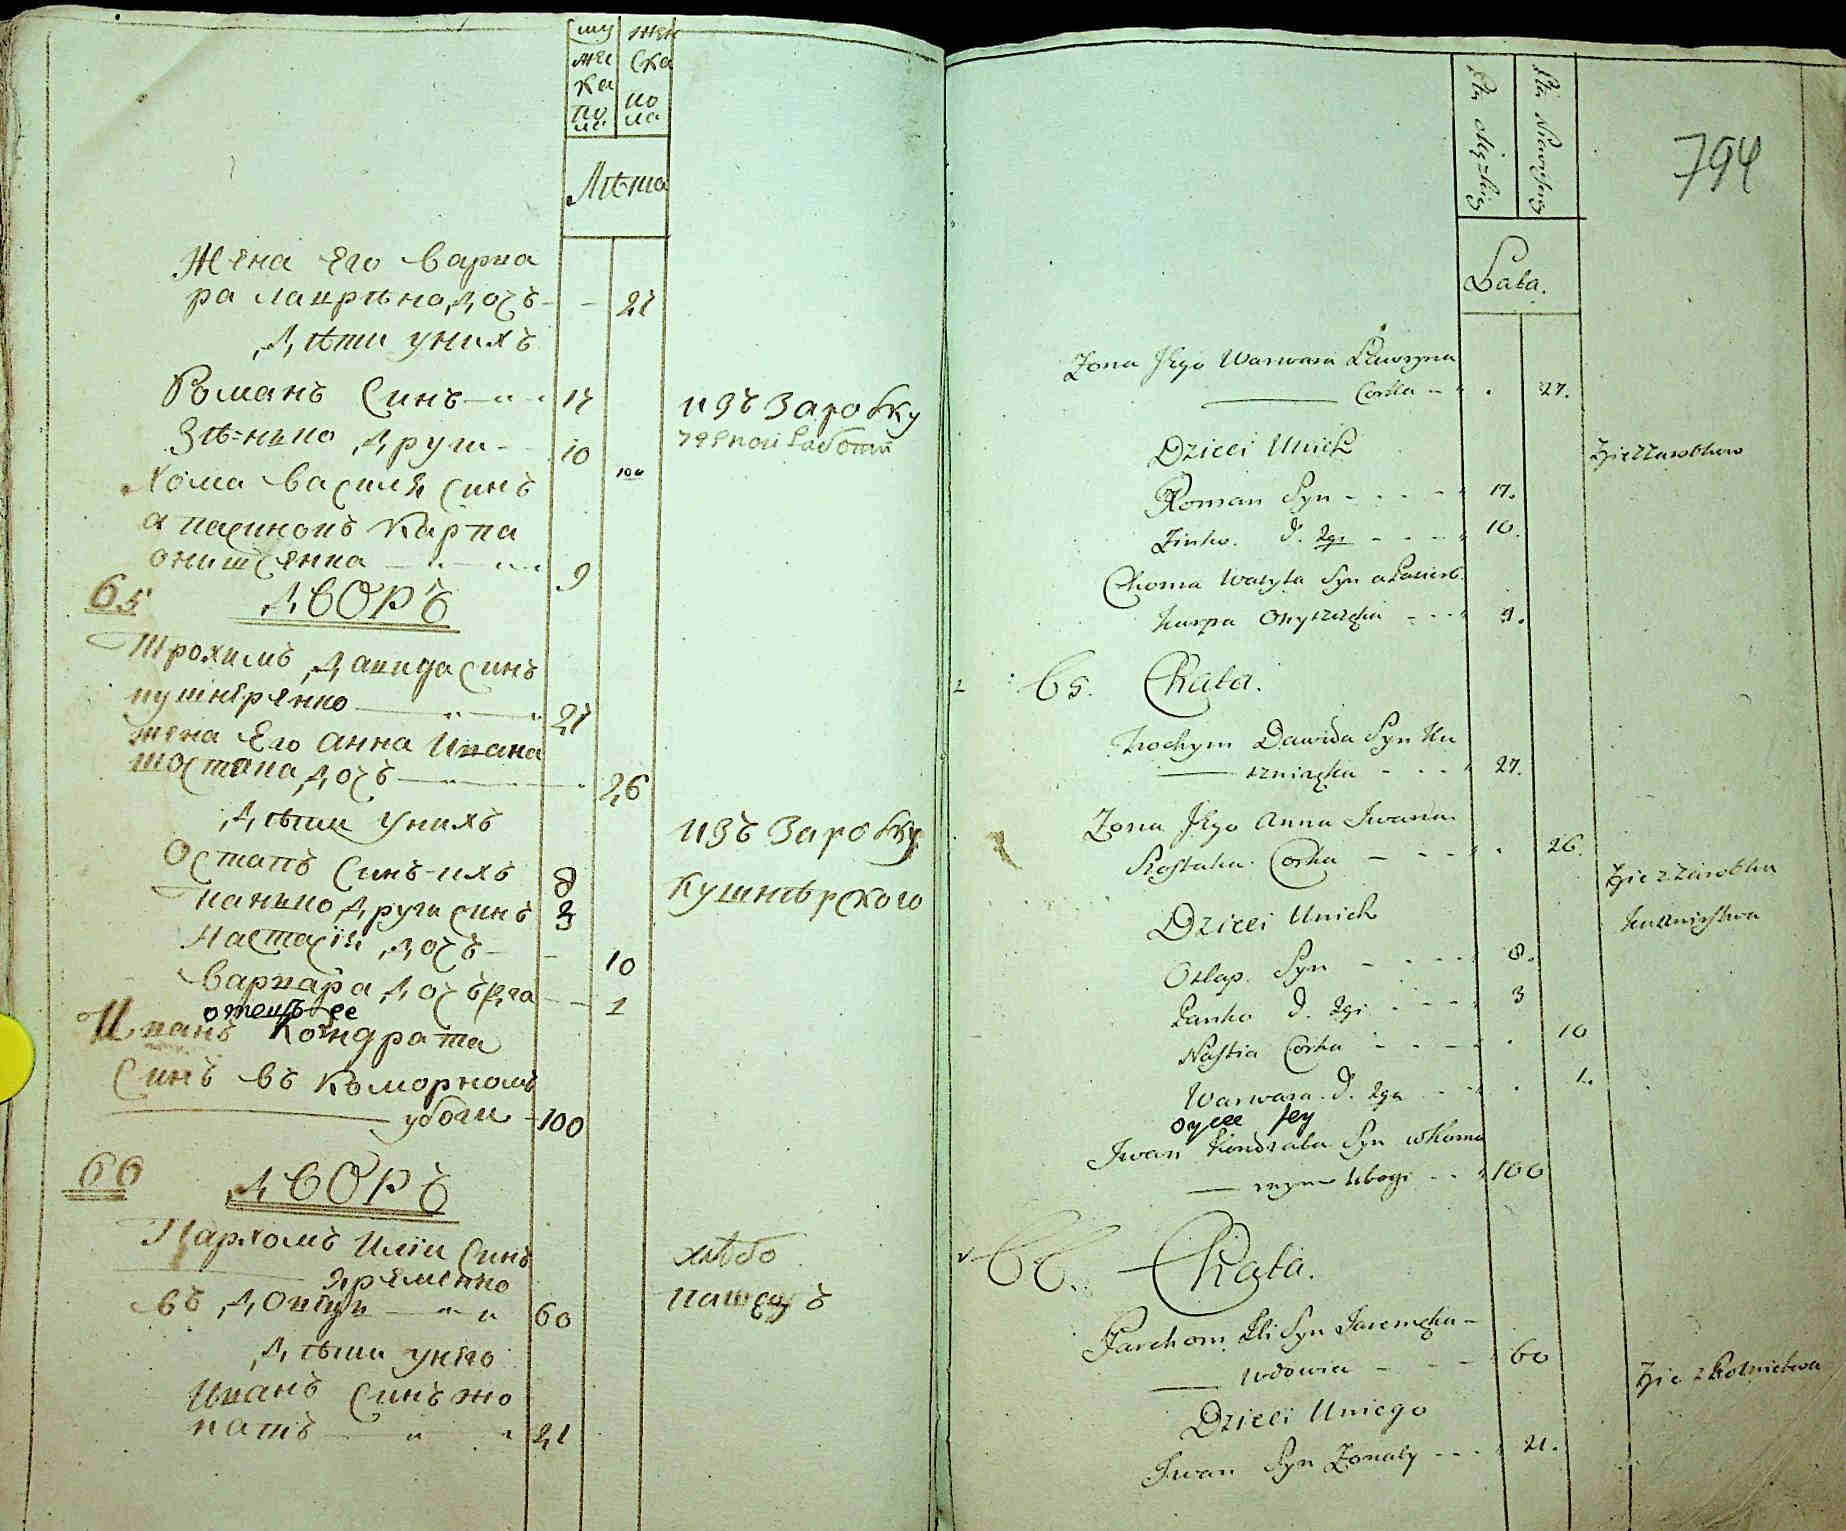 мужеска пола
женска пола
Лѣта
Жена Его варва
ра лавріна дочъ - - 27
Дѣти унихъ
Романъ Синъ 17
изъ Заробку
Зѣнько други 10
Хома василя синъ
а пасинокъ Карпа
онищенка 9
65 Дворъ
Трохимъ Давида Синъ
кушнѣренко 27
жена Его анна Ивана
шостака дочъ 26
Дѣти унихъ
изъ Заробку
Остапъ Синъ ихъ 8
кушнѣрского
Панько други синъ 3
Настасія дочъ - 10
варвара дочъ 2га - - 1
отецъ ее
Иванъ Кондрата
Синъ въ Коморномъ
убоги 100
66 Дворъ
Пархомъ Иліи Синъ
хлѣбо
Яременко
въ довцу 60
пашецъ
Дѣти унего
Иванъ Синъ жо
натъ 21
794
Płci Męzkiey
Płci Niewieściey
Lata.
Zona Jego Warwara Ławryna
Corka - 27.
Dzieci Unich
Zyie z Zarobkow
Roman Syn - - - 17.
Zinko. d. 2gi - - - 10.
Choma Wasyla Syn a Pasierb
Karpa Onyszczęka - - - 9.
65. Chata.
Trochym Dawida Syn Ku
szniręka - - - 27.
Zona Jego Anna Iwana
Szostaka Corka - - - 26.
Zyie z Zarobku
Dzieci Unich
Kusznirstwa
Ostap. Syn - - - 8.
Panko d. 2gi - - - 3
Nastia Corka - - - 10
Warwara d. 2ga - - 1.
oycec jey
Iwan Kondrata Syn w Komo
rnym Ubogi - - 100
66. Chata.
Parchom Ili Syn Jaremęka -
wdowiec - - - 60
Zyie z Rolnictwa
Dzieci Uniego
Iwan Syn Zonaty - - - 21.